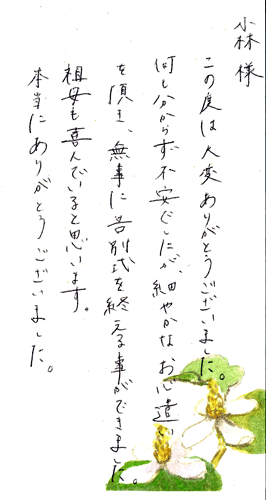 小林 様
この度は大変ありがとうございました。
何も分からず不安でしたが、細やかなお心遣い
を頂き、無事に告別式を終える事ができました。
祖母も喜んでいると思います。
本当にありがとうございました。